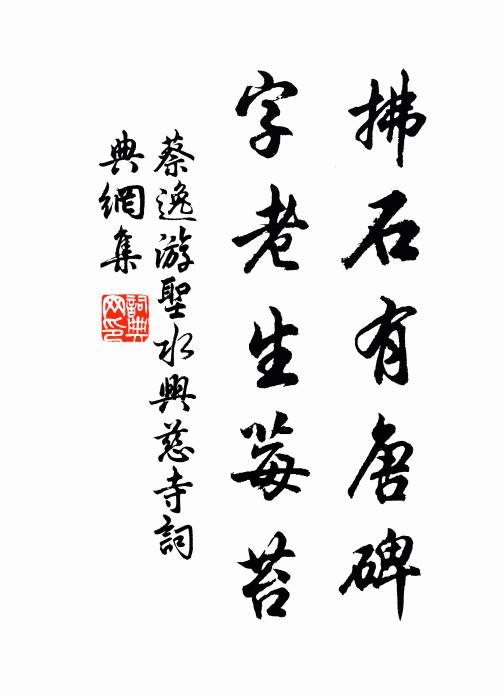 拂石有唐碑
字老生莓苔
蔡逸游聖水興慈寺詞
典網集
詞典
网印